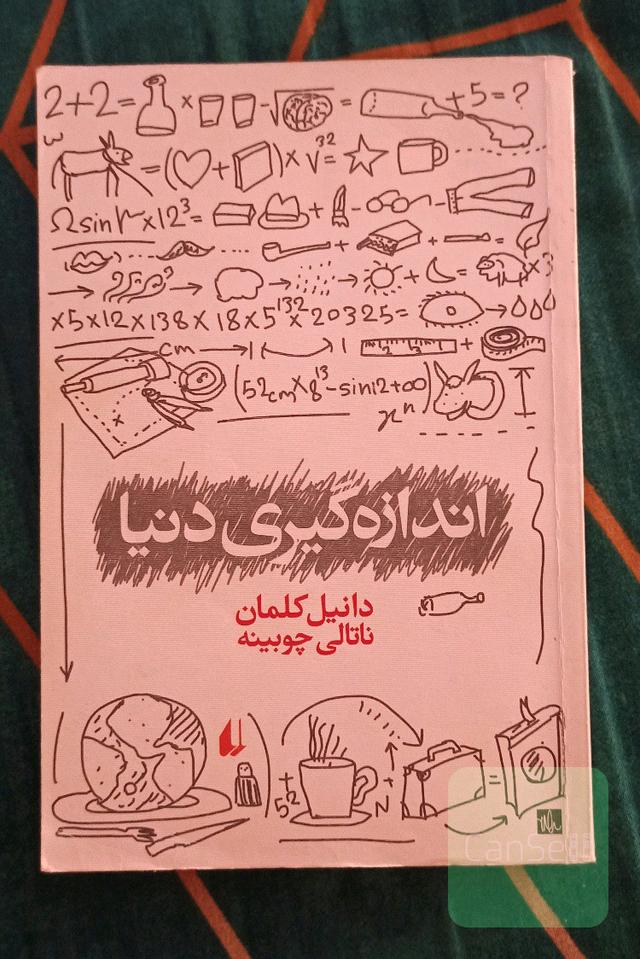 2+2= × - = +5=?
=( + )× V³²=
Ω sin ×12³= + - -
+ + =
+ = ×3
×5×12×138×18×5¹³²×20325=
cm +
x (52cm×8¹³-sin12+∞)
xⁿ
اندازه‌گیری دنیا
دانیل کلمان
ناتالی چوبینه
52+ =
CanSell